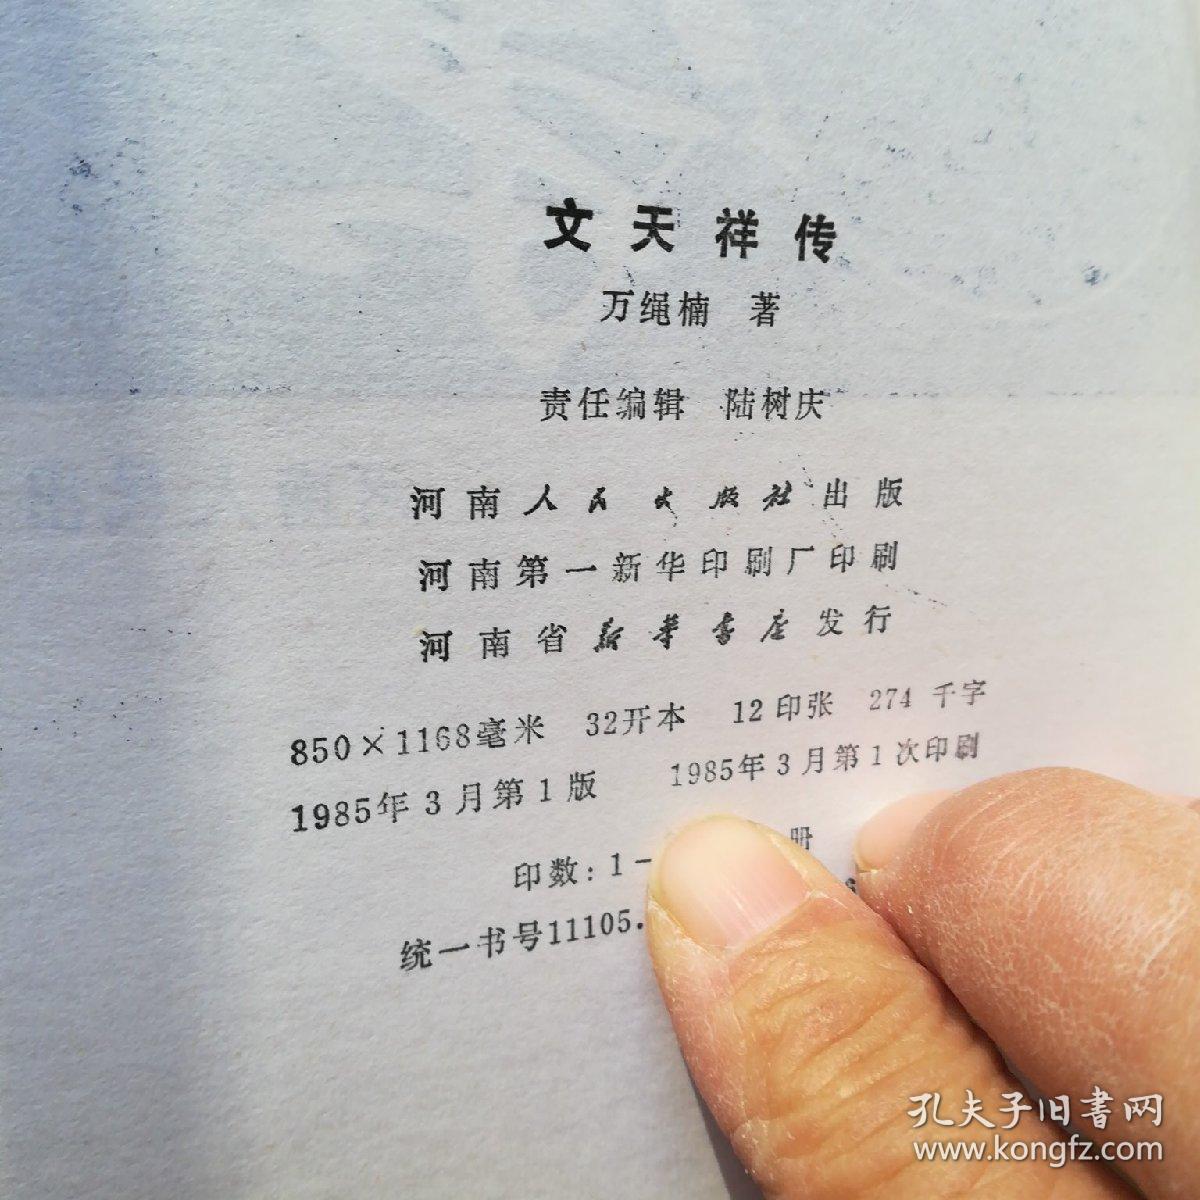 文天祥传
万绳楠 著
责任编辑 陆树庆
河南人民出版社出版
河南第一新华印刷厂印刷
河南省新华书店发行
850×1168毫米 32开本 12印张 274千字
1985年3月第1版 1985年3月第1次印刷
印数：1— 册
统一书号11105.
孔夫子旧書网
www.kongfz.com